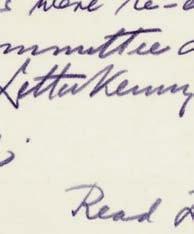 were re-e
ommittee
Letterkenny
Read